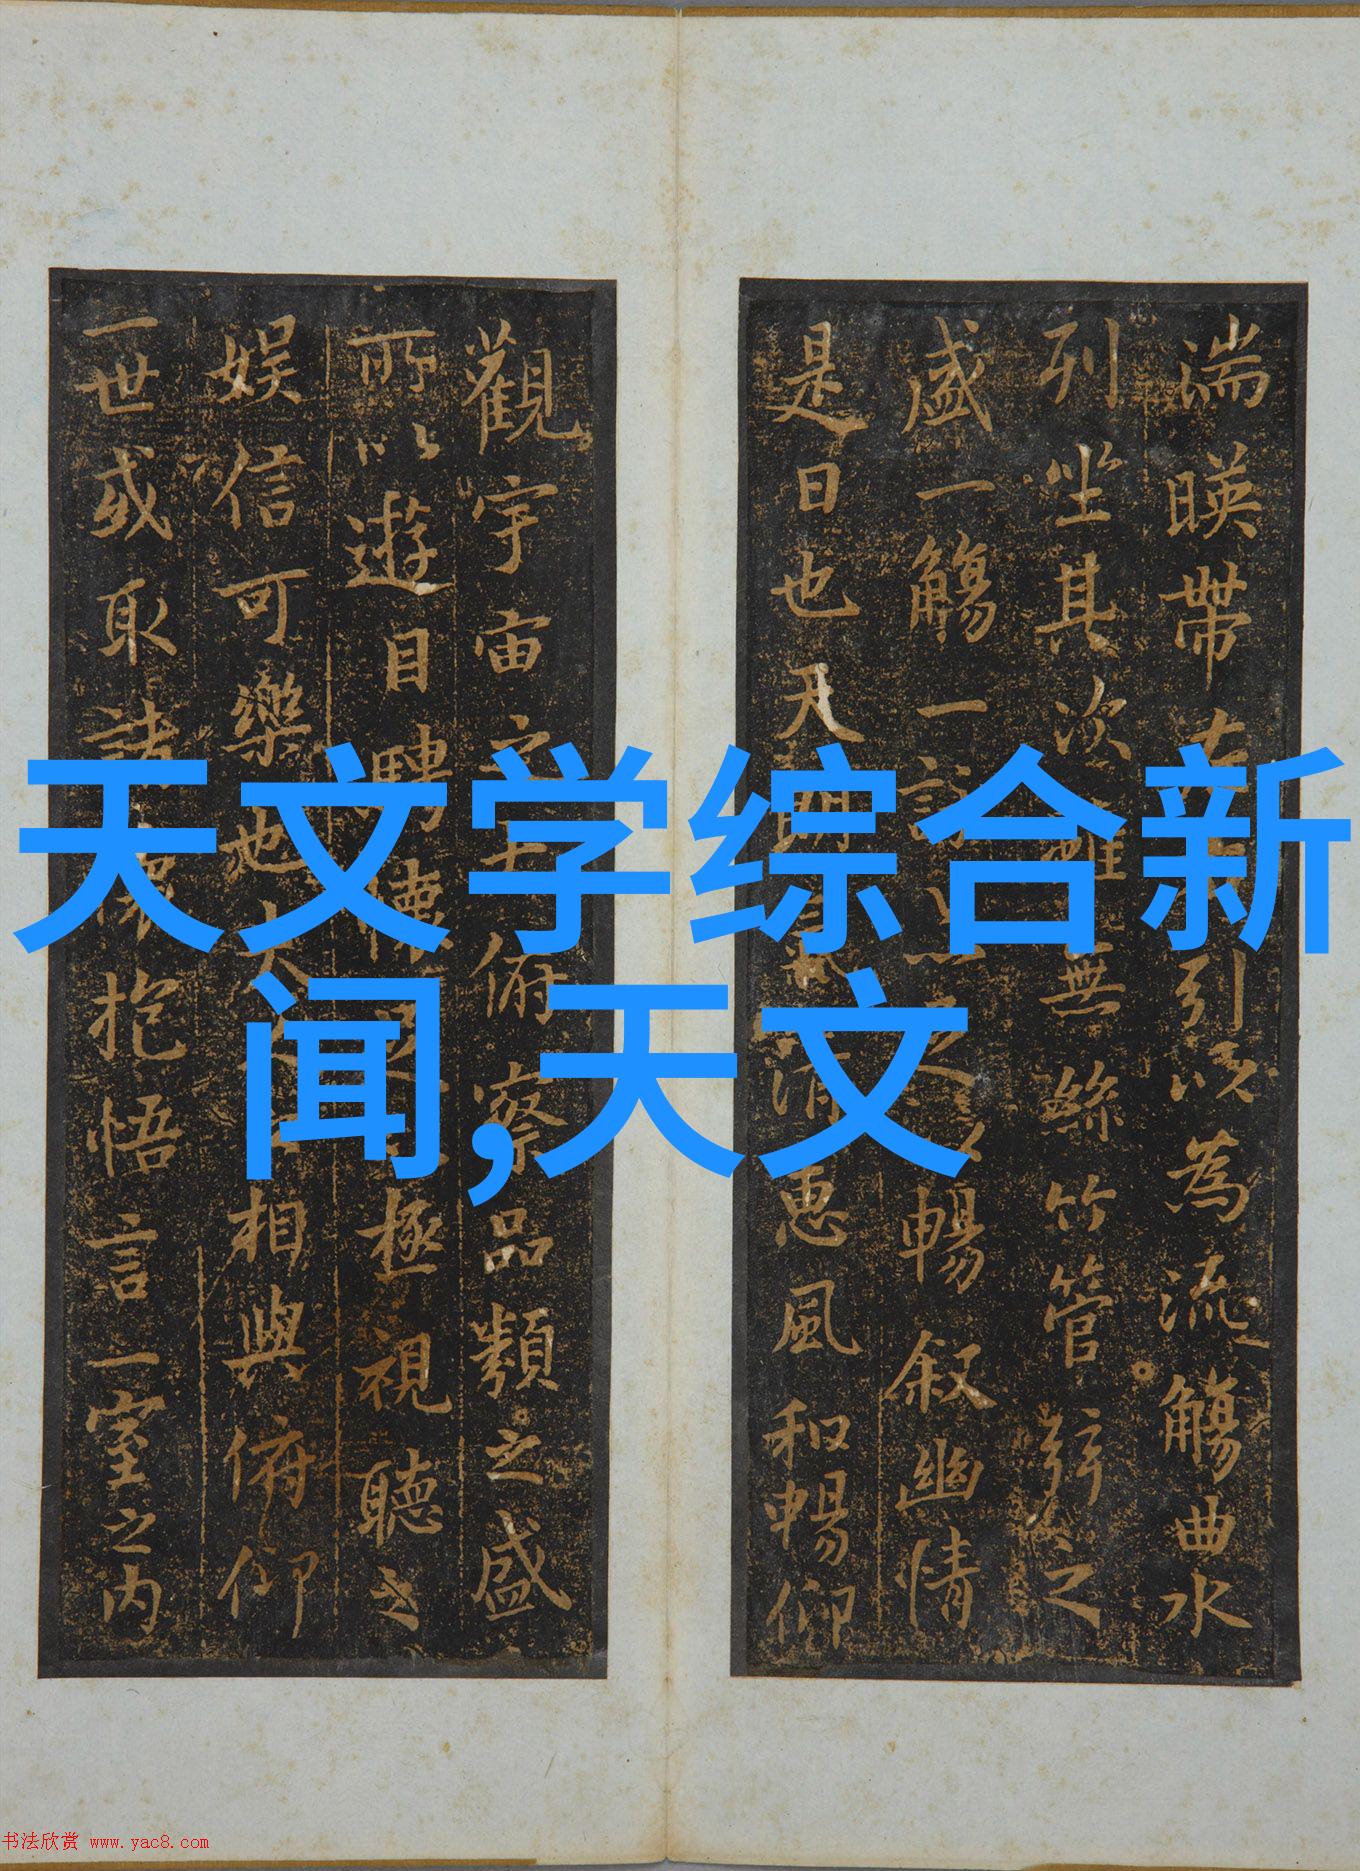 天文学综合新
闻,天文
湍暎帶左引以為流觴曲水
列坐其次雖無絲竹管弦之
盛一觴一詠暢叙幽情
是日也天朗清惠風和暢仰
觀宇宙之大俯察品類之盛
所以遊目騁懷極視聽之
娛信可樂也夫相與俯仰
一世或取諸懷抱悟言一室之内
书法欣赏 www.yac8.com